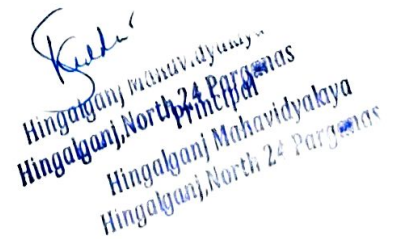 Hingalganj Mahavidyalaya
Hingalganj,North 24 Parganas
Principal
Hingalganj Mahavidyalaya
Hingalganj,North 24 Parganas